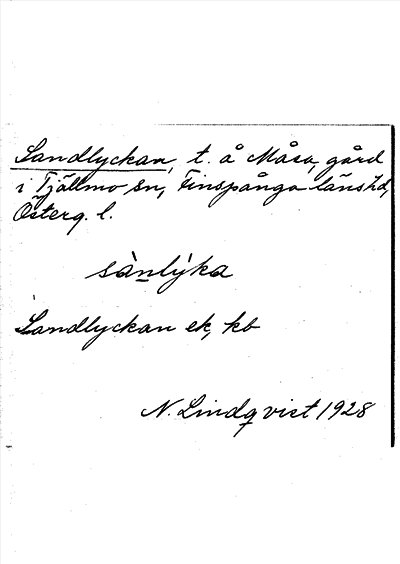 Sandlyckan, t. å Måsa, gård
i Tjällmo sn, Finspånga länshd,
Österg. l.
sànlýka
Sandlyckan ek, kb
N. Lindqvist 1928